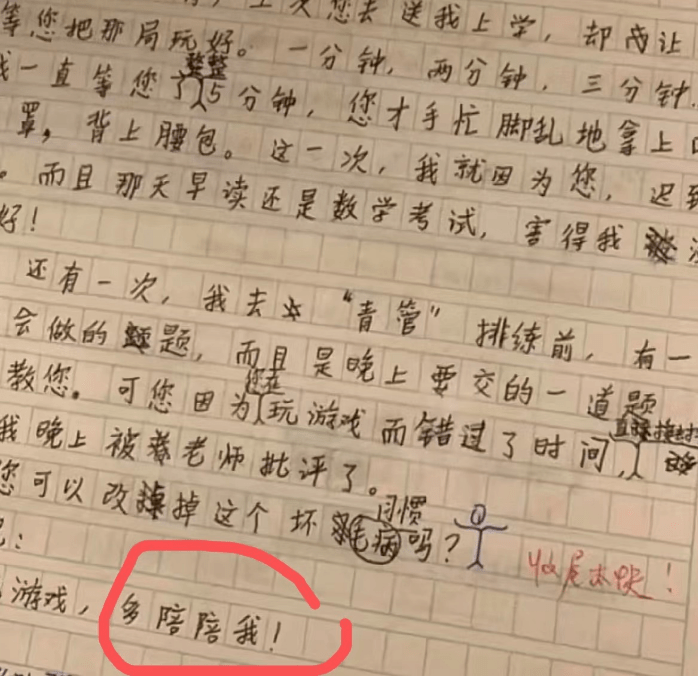 等您把那局玩好。一分钟，两分钟，三分钟
我一直等您了整整15分钟，您才手忙脚乱地拿上口
罩，背上腰包。这一次，我就因为您，迟到
。而且那天早读还是数学考试，害得我没
好！
还有一次，我去“青管”排练前，有一
会做的题，而且是晚上要交的一道题
教您。可您因为您在玩游戏而错过了时间，直接
我晚上被老师批评了。
您可以改掉这个坏习惯毛病吗？
收尾太快！
游戏，多陪陪我！